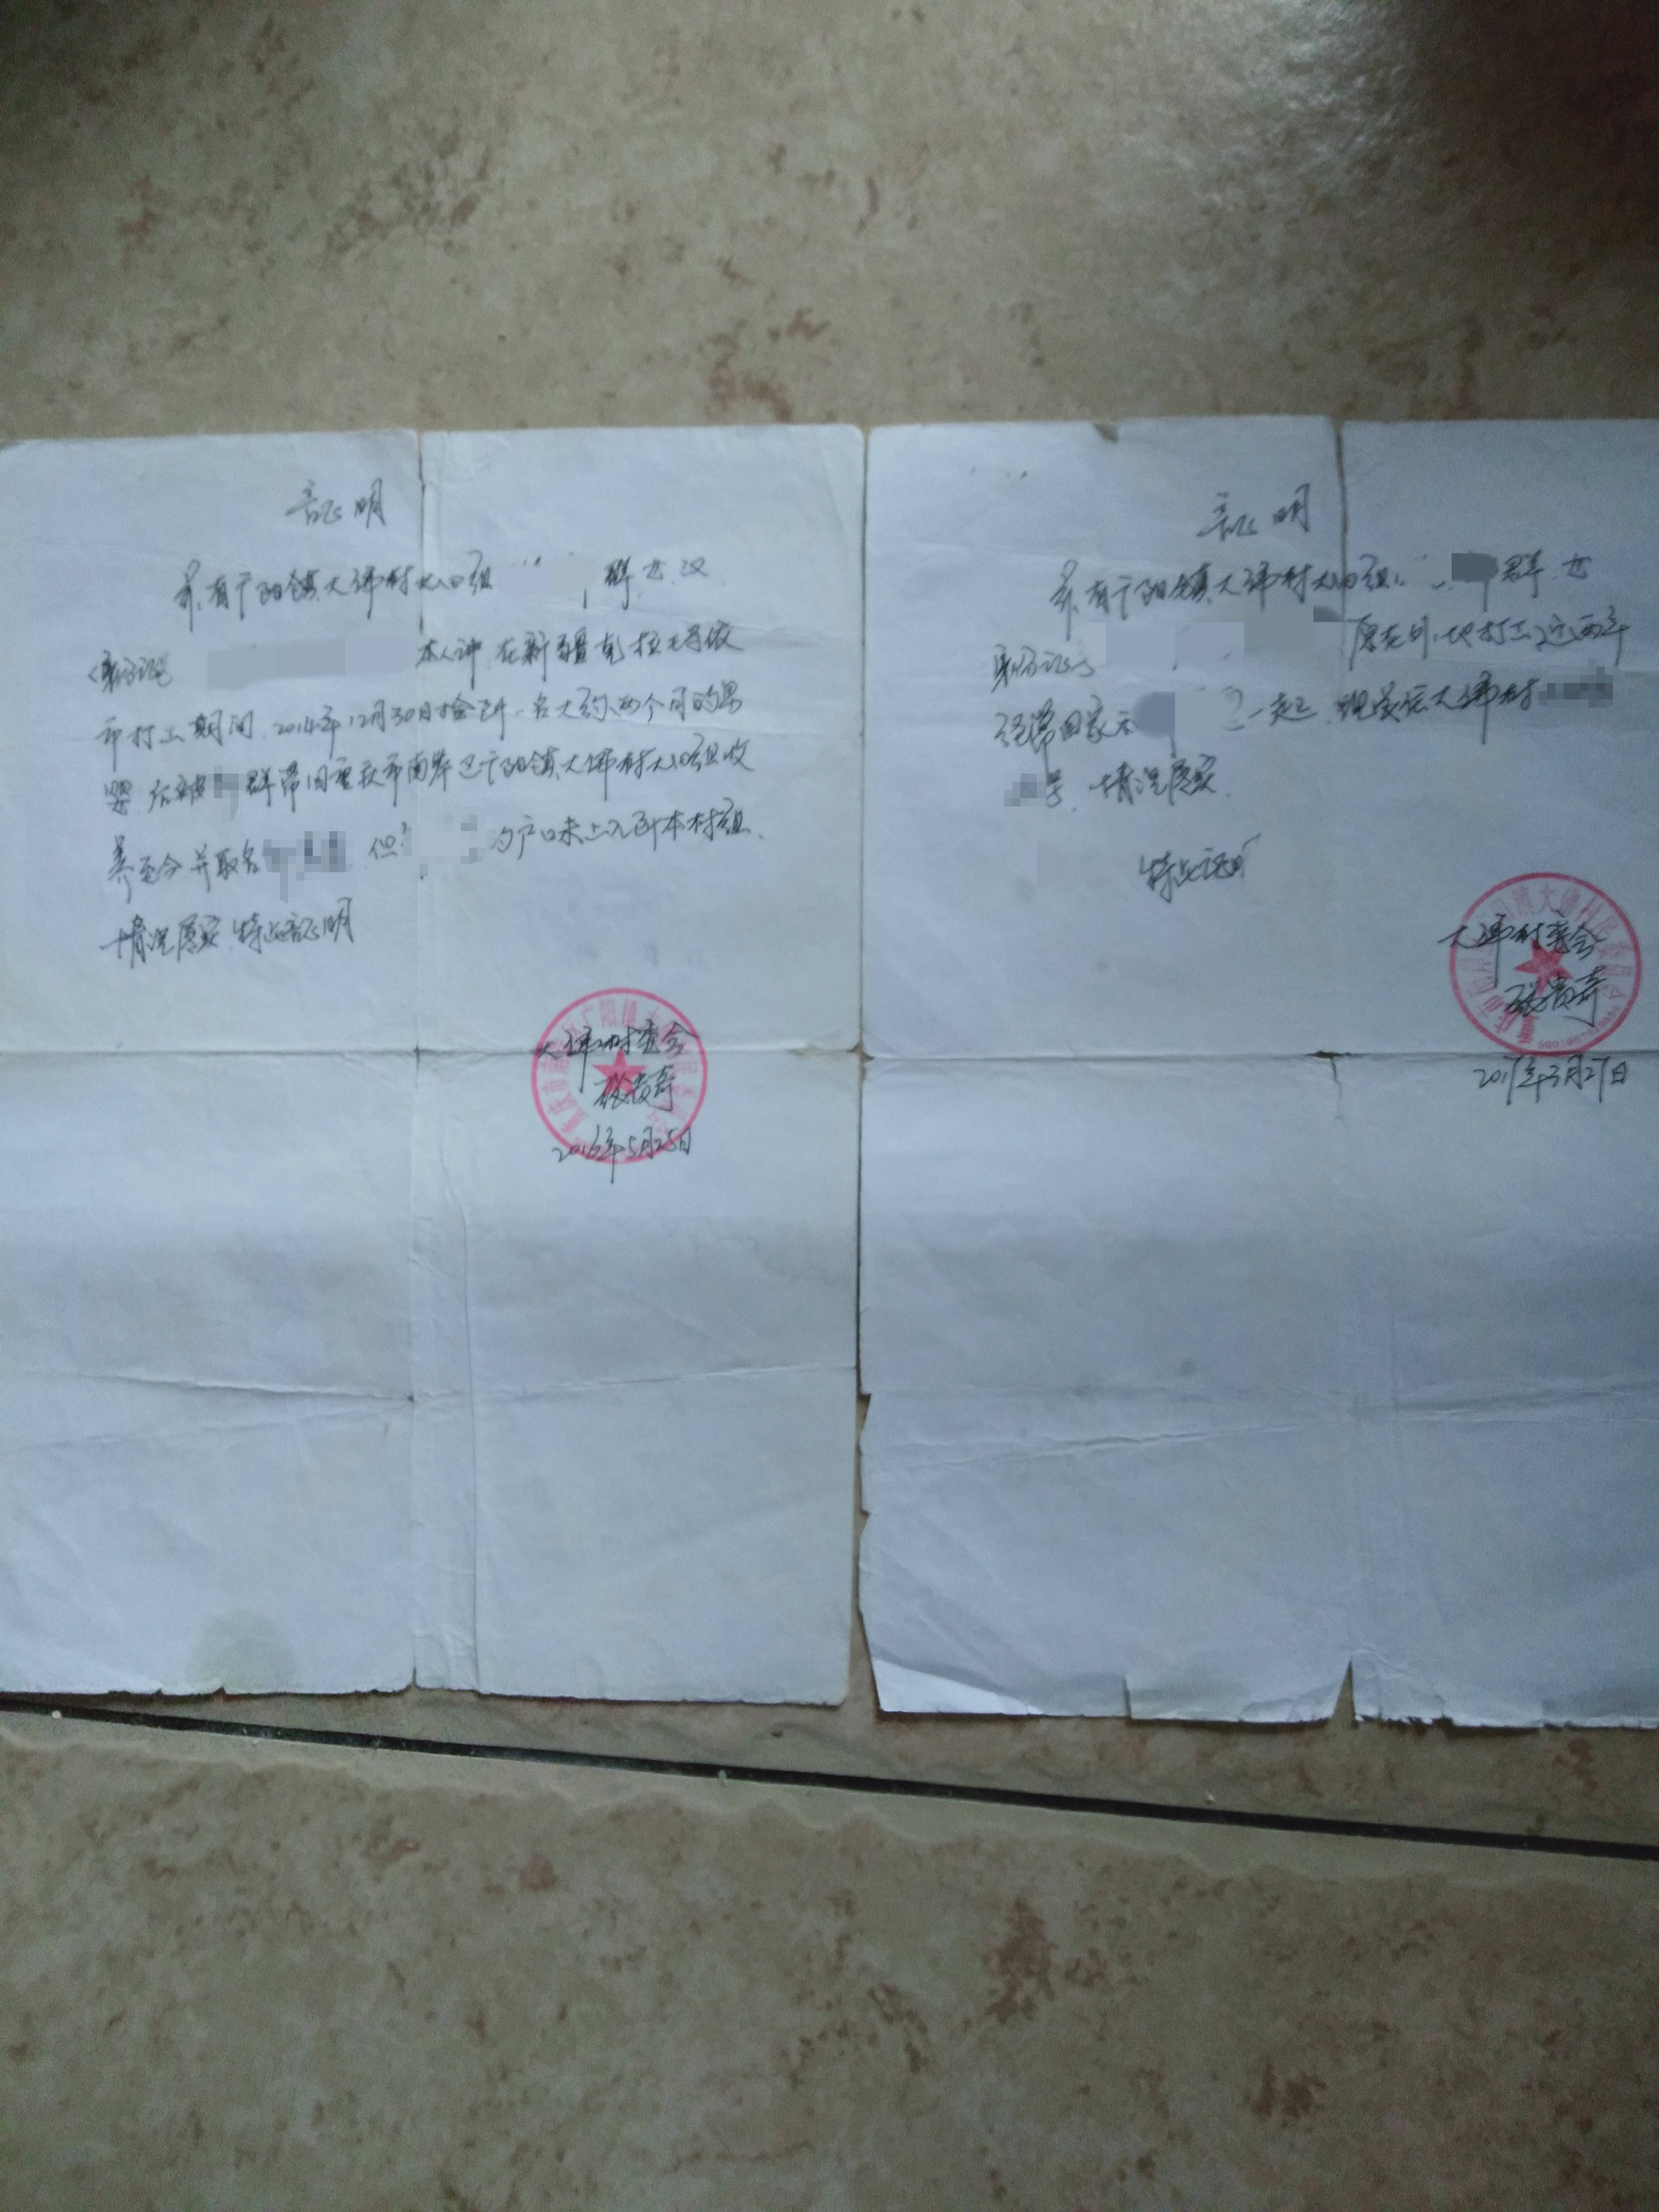 证明
兹有广阳镇大佛村大田组 群 女 汉
身份证号 本人诉 在新疆克拉玛依
市打工期间,2014年12月30日捡到一名大约两个月的男
婴 后被 群带回重庆市南岸区广阳镇大佛村大田组收
养至今并取名 但 的户口未上入到本村组
情况属实 特此证明
大佛村委会
2016年5月25日
证明
兹有广阳镇大佛村大田组 群 女
身份证号 原在外地打工 近两年
经常回家和 一起 现家住大佛村
号 情况属实
特此证明
大佛村委会
2017年3月27日